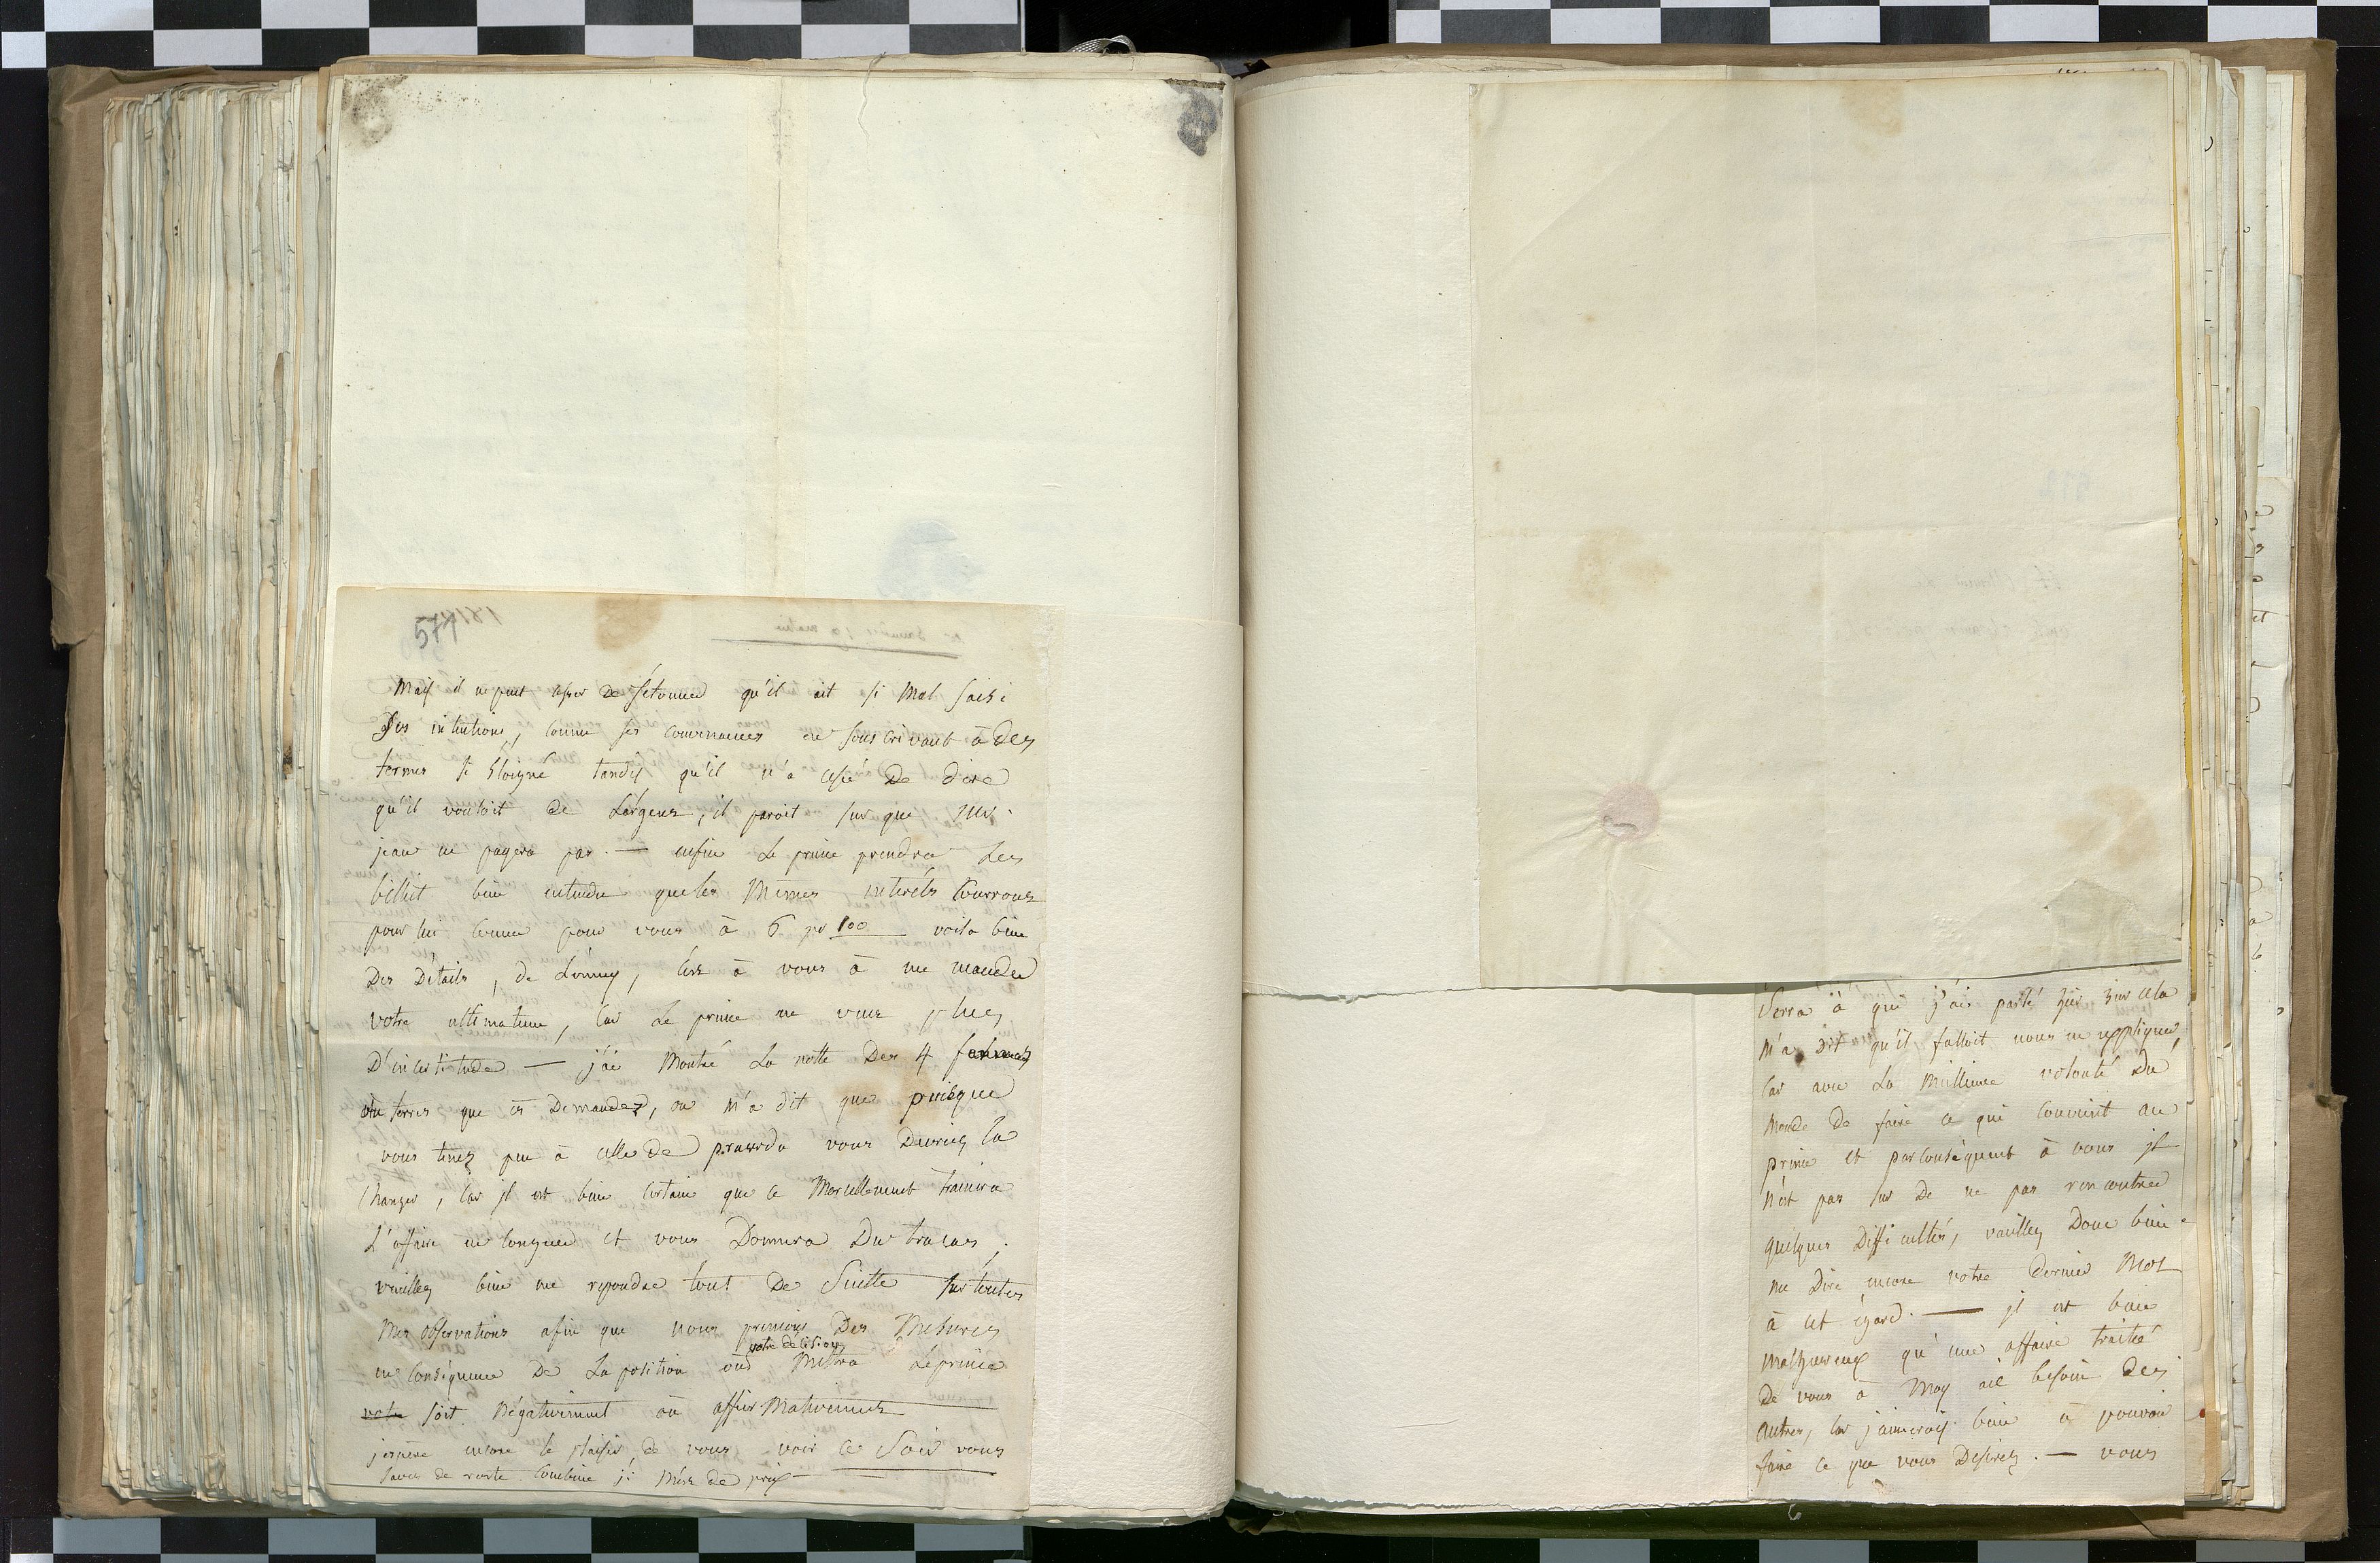 574
Mais il ne peut cesser de s'étonner qu'il ait si Mal saisi
Ses intentions, comme ses convenances en souscrivant à des
termes si Eloigné tandis qu'il n'a cessé De dire
qu'il vouloit de L'argent, il paroit sur que Mr.
jean ne payera pas. — enfin Le prince prendra Les
billiet bien entendu que les Mêmes interêts Courrons
pour lui comme pour vous à 6 pr 100 voila bien
Des Détails, de L'ennuy, c'est à vous à me mander
votre ultimatum, Car Le prince ne veut plus
D'incertitude — j'ai Montré La notte Des 4 fermes
ou terres que Demandez, on M'a dit que puisque
vous tenez peu à celle de prawda vous Devriez la
Changer, Car jl est bien certain que ce Morcellement trainera
L'affaire en longueur et vous Donnera Du tracas.
veuillez bien me repondre tout De Suitte sur toutes
Mes Observations afin que nous prenions Des Mesures
votre décision
en Conséquence De La position où Mettra Le prince
votre soit Négativement ou affirMativement
j'espère encore le plaisir de vous voir ce Soir vous
savez de reste Combien j'i Mest de prix
Serra à qui j'ai parlé hier sur cela
M'a Dit qu'il falloit nous en uppliquer,
Car avec La Meilleure volonté Du
Monde De faire ce qui Convient au
prince et parconséquent à vous jl
n'est pas sur De ne pas rencontrer
quelques Difficultés, veuillez Donc bien
me Dire encore votre Dernier Mot
à cet égard. — jl est bien
Malheureux qu'une affaire traité
De vous à Moy ait besoin des
autres, Car j'aimerois bien à pouvoir
faire ce que vous Desirez. — vous